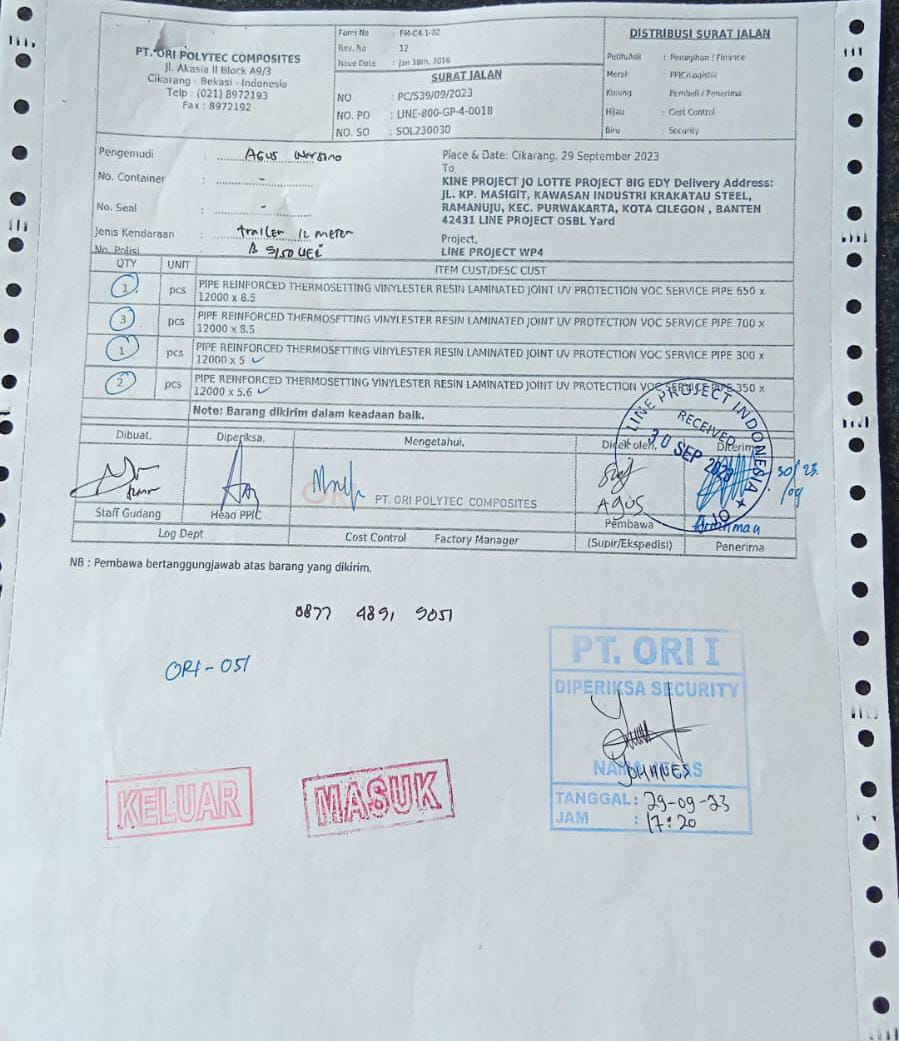 PT. ORI POLYTEC COMPOSITES
Jl. Akasia II Block A9/3
Cikarang - Bekasi - Indonesia
Telp : (021) 8972193
Fax : 8972192
Form No : FM-C4.1-02
Rev. No : 12
Issue Date : Jan 18th, 2016
SURAT JALAN
NO : PC/539/09/2023
NO. PO : LINE-800-GP-4-0018
NO. SO : SOL230030
DISTRIBUSI SURAT JALAN
Putih/Asli : Penagihan / Finance
Merah : PPIC/Logistic
Kuning : Pembeli / Penerima
Hijau : Cost Control
Biru : Security
Pengemudi : Agus
No. Container : -
No. Seal : -
Jenis Kendaraan : trailer 12 meter
No. Polisi : B 9150 UEI
Place & Date: Cikarang, 29 September 2023
To,
KINE PROJECT JO LOTTE PROJECT BIG EDY Delivery Address:
JL. KP. MASIGIT, KAWASAN INDUSTRI KRAKATAU STEEL,
RAMANUJU, KEC. PURWAKARTA, KOTA CILEGON , BANTEN
42431 LINE PROJECT OSBL Yard
Project,
LINE PROJECT WP4
QTY UNIT ITEM CUST/DESC CUST
1 pcs PIPE REINFORCED THERMOSETTING VINYLESTER RESIN LAMINATED JOINT UV PROTECTION VOC SERVICE PIPE 650 x
12000 x 8.5
3 pcs PIPE REINFORCED THERMOSETTING VINYLESTER RESIN LAMINATED JOINT UV PROTECTION VOC SERVICE PIPE 700 x
12000 x 8.5
1 pcs PIPE REINFORCED THERMOSETTING VINYLESTER RESIN LAMINATED JOINT UV PROTECTION VOC SERVICE PIPE 300 x
12000 x 5 ✓
2 pcs PIPE REINFORCED THERMOSETTING VINYLESTER RESIN LAMINATED JOINT UV PROTECTION VOC SERVICE PIPE 350 x
12000 x 5.6 ✓
Note: Barang dikirim dalam keadaan baik.
Dibuat, Diperiksa, Mengetahui, Dicek oleh, Diterima
LINE PROJECT INDONESIA JO
RECEIVED
30 SEP 2023
30/23
/09
ORI PT. ORI POLYTEC COMPOSITES
AGUS
Staff Gudang Head PPIC Pembawa
Log Dept Cost Control Factory Manager (Supir/Ekspedisi) Penerima
NB : Pembawa bertanggungjawab atas barang yang dikirim.
0877 4891 9051
ORI-051
PT. ORI I
DIPERIKSA SECURITY
YOHANES
TANGGAL : 29-09-23
JAM : 17:20
KELUAR
MASUK